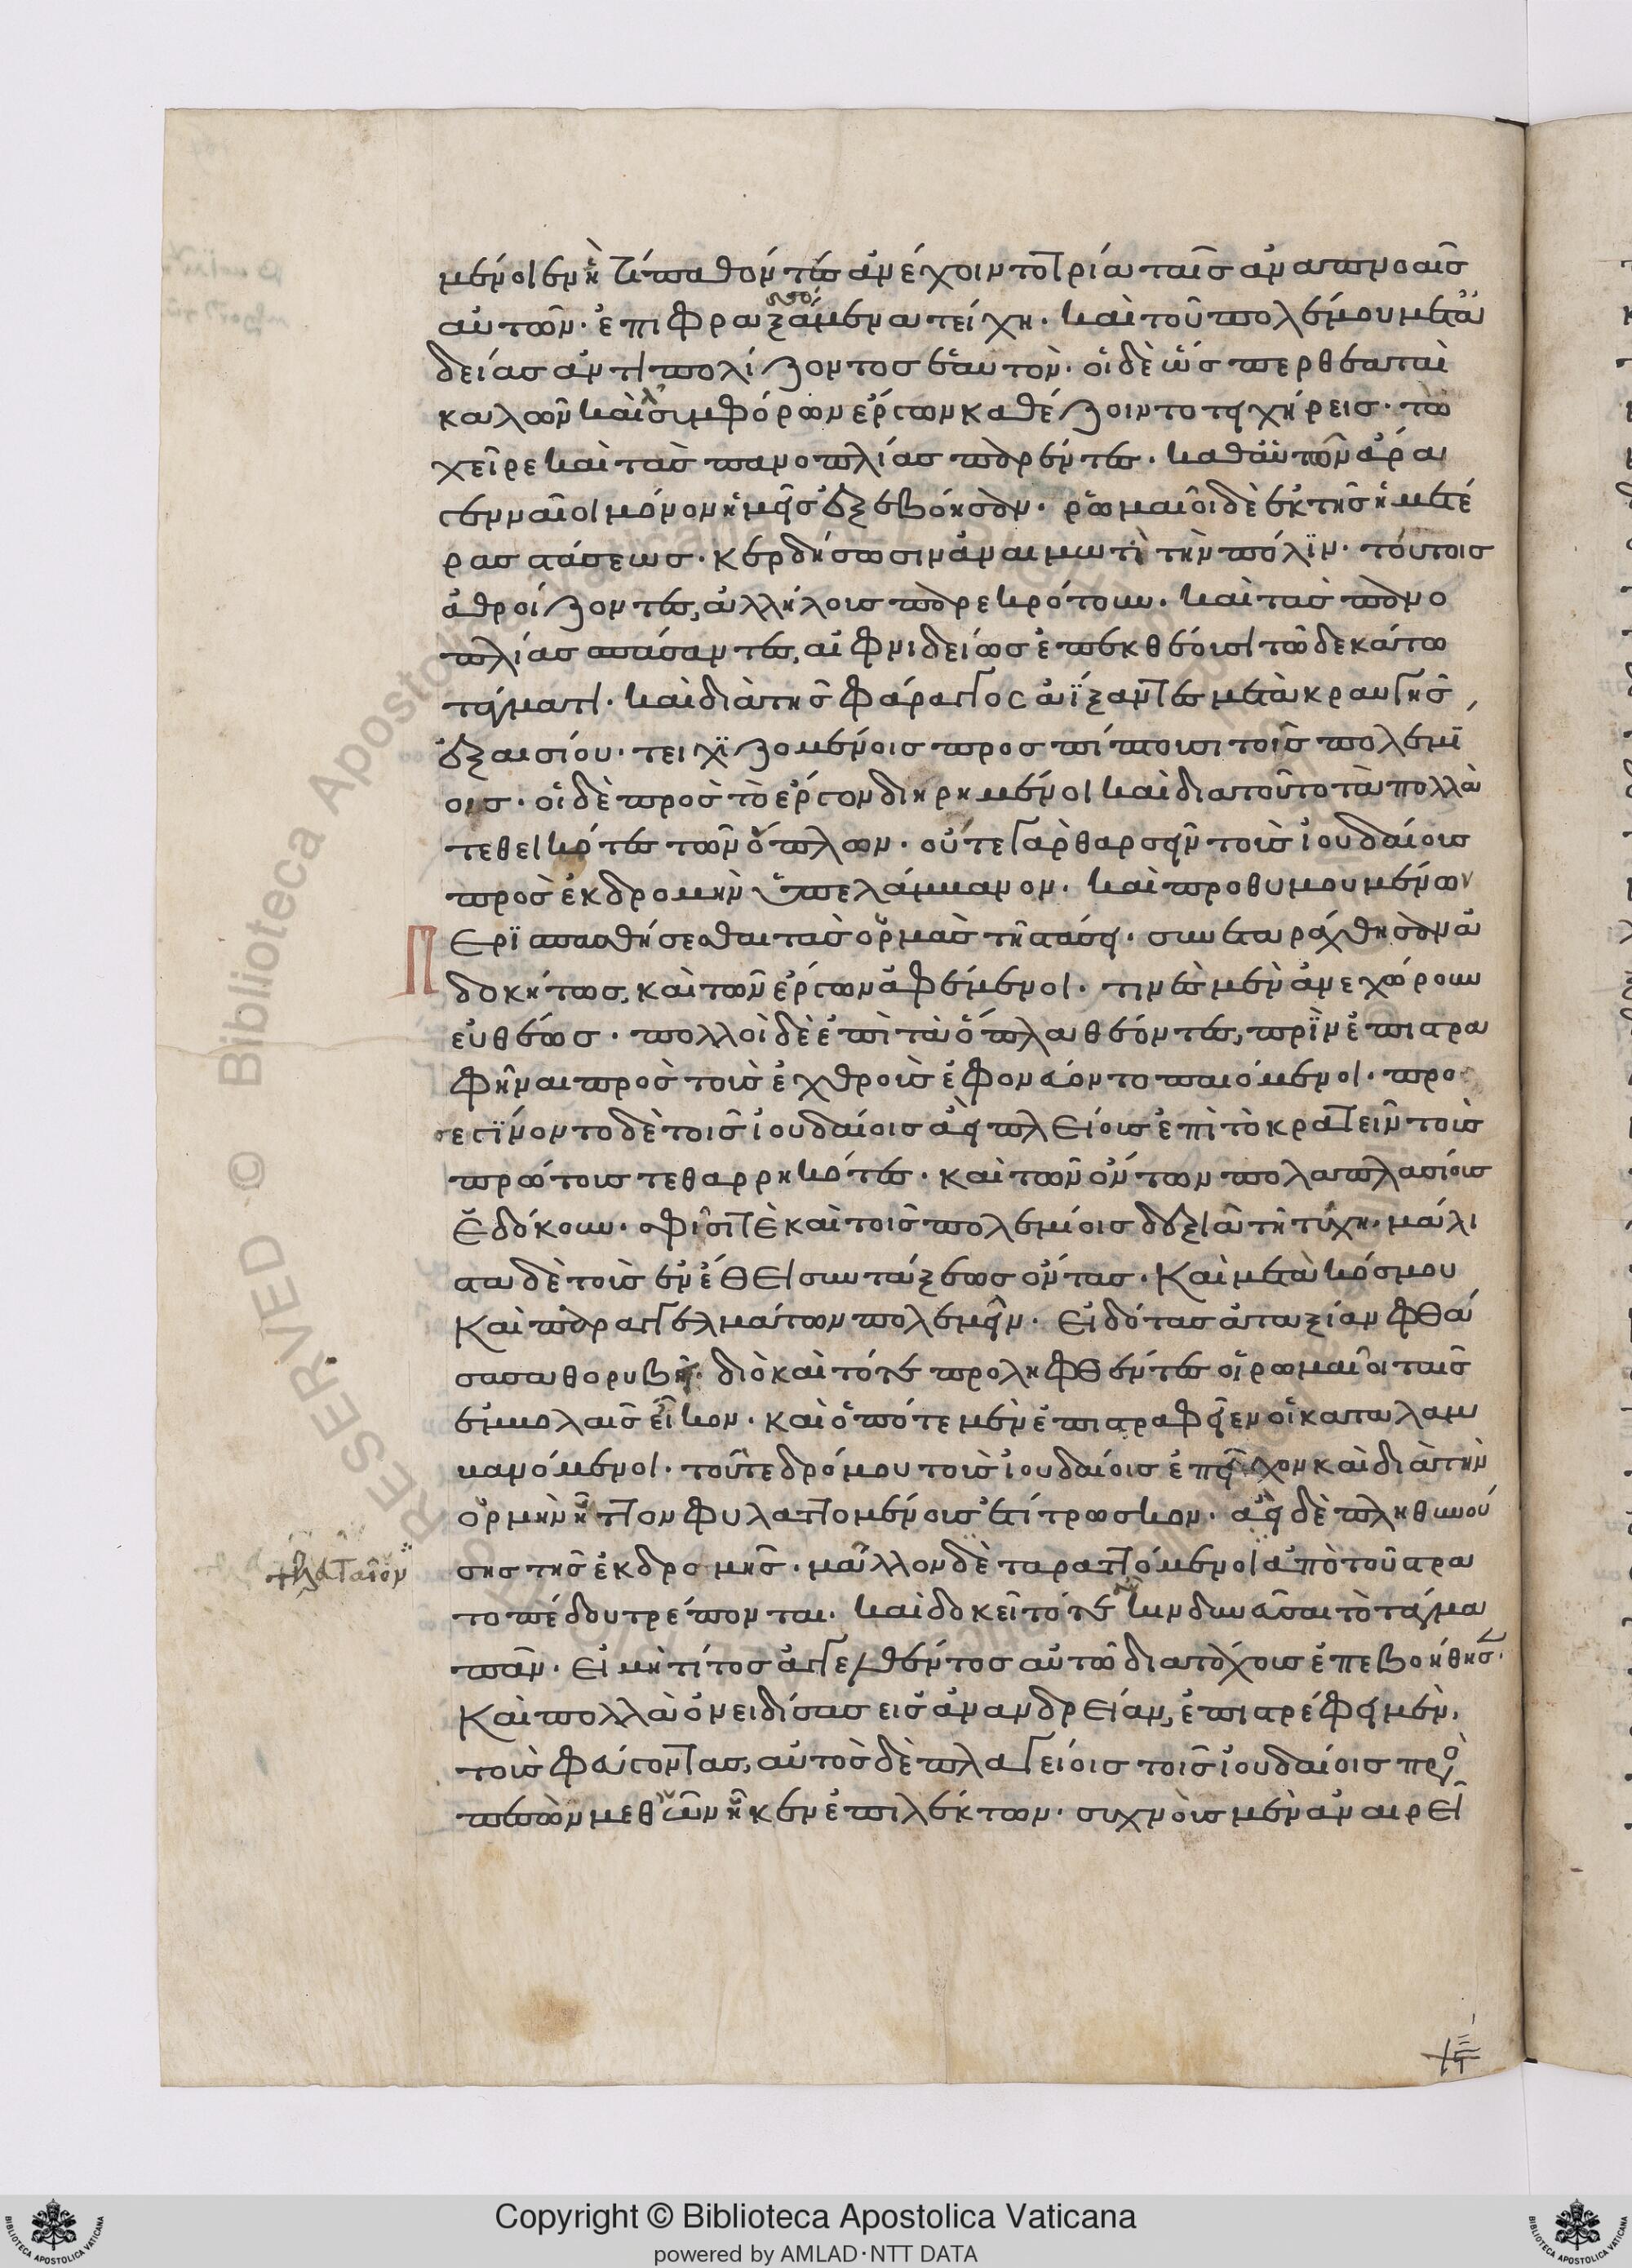 μένοι ἐν ἢ τί παθόντες ἀνέχοιντο τρία ταῖς ἀναπνοαῖς
αὐτῶν· ἐπιφραξάμενα τείχη· καὶ τοῦ πολέμου μετὰ
δείας ἀντιπολίζοντος ἑαυτὸν· οἱ δὲ ὥσπερ θεαταὶ
καλῶν καὶ συμφόρων ἔργων καθέζοιντο τειχήρεις· τὼ
χεῖρε καὶ τὰς πανοπλίας παρέντες· καθ' αὑτῶν ἄρα
γενναῖοι μόνον ἡμεῖς ἐξεβόησαν· ῥωμαῖοι δὲ ἐκ τῆς ἡμετέ
ρας στάσεως· κερδήσωσιν ἀναιμωτὶ τὴν πόλϊν· τούτοις
ἀθροίζοντες, ἀλλήλους παρεκρότουν· καὶ τὰς πανο
πλίας σπάσαντες, αἰφνιδείως ἐπεκθέουσι τῶ δεκάτω
τάγματι· καὶ διὰ τῆς φάραγγος ἀΐξαντες μετὰ κραυγῆς
ἐξαισίου· τειχϊζομένοις προσπίπτουσι τοῖς πολεμΐ
οις· οἱ δὲ πρὸς τὸ ἔργον διηρημένοι καὶ διὰ τοῦτο τὰ πολλὰ
τεθεικότες τῶν ὅπλων· οὔτε γὰρ θαρσεῖν τοὺς ἰουδαίους
πρὸς ἐκδρομὴν ὑπελάμβανον· καὶ προθυμουμένων
Περϊσπασθήσεσθαι τὰς ὁρμὰς τῆ στάσει· συνεταράχθησαν ἀ
δοκήτως, καὶ τῶν ἔργων ἀφέμενοι· τινὲς μὲν ἀνεχώρουν
εὐθέως· πολλοὶ δὲ ἐπὶ τὰ ὅπλα θέοντες, πρῒν ἐπιστρα
φῆναι πρὸς τοὺς ἐχθροὺς ἐφονεύοντο παιόμενοι· προ
σεγΐνοντο δὲ τοῖς ἰουδαίοις ἀεὶ πλείους ἐπὶ τὸ κρατεῖν τοὺς
πρώτους τεθαρρηκότες· καὶ τῶν ὄντων πολαπλασίους
ἐδόκουν· σφίσί τε καὶ τοῖς πολεμίοις δεξιᾶ τῆ τύχη· μάλι
στα δὲ τοὺς ἐν ἔθει συντάξεως ὄντας· Καὶ μετὰ κόσμου
Καὶ παραγγελμάτων πολεμεῖν· εἰδότας ἀταξίαν φθά
σασα θορυβεῖ· διὸ καὶ τότε προληφθέντες οἱ ῥωμαῖοι ταῖς
ἐμβολαῖς εἶκον· καὶ ὁπότε μὲν ἐπιστραφεῖεν οἱ καταλαμ
βανόμενοι· τοῦ τε δρόμου τοὺς ἰουδαίους ἐπεῖχον καὶ διὰ τὴν
ὁρμὴν ἧττον φυλαττομένους ἐτίτρωσκον· ἀεὶ δὲ πληθυνού
σης τῆς ἐκδρομῆς· μᾶλλον δὲ ταραττόμενοι ἀπὸ τοῦ στρα
τοπέδου τρέπονται· καὶ δοκεῖ τότε κινδυνεῦσαι τὸ τάγμα
πᾶν· εἰ μὴ τίτος ἀγγελθέντος αὐτῶ διατάχους ἐπεβοήθησε·
Καὶ πολλὰ ὀνειδίσας εἰς ἀνανδρείαν, ἐπιστρέφει μὲν,
τοὺς φεύγοντας, αὐτὸς δὲ πλαγείοις τοῖς ἰουδαίοις προ
πεσὼν μεθ' ὧν ἧκεν ἐπιλέκτων· συχνοὺς μὲν ἀναιρεῖ